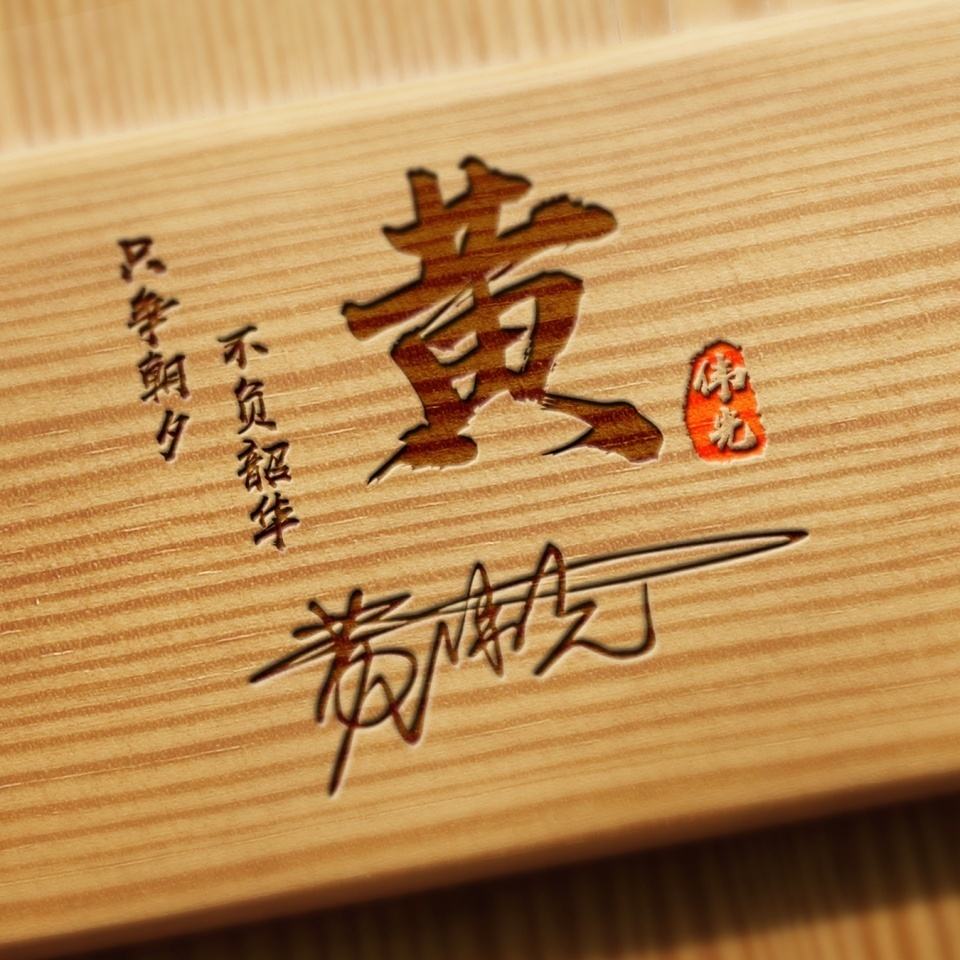 黄
伟光
只争朝夕
不负韶华
黄伟光